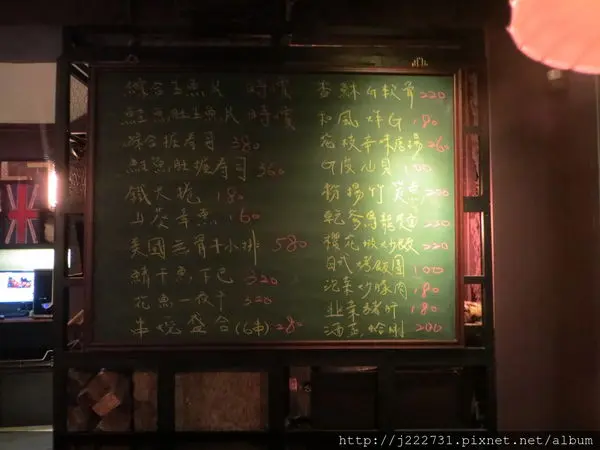 綜合生魚片 時價
鮭魚肚生魚片 時價
綜合握壽司 380
鮭魚肚握壽司 360
180
160
美國無骨牛小排 580
鯖干魚下巴 320
花魚一夜干 320
串燒盛合(6串) 280
香酥G軟骨 220
和風炸G 180
花枝 260
100
酥揚竹筴魚 200
220
櫻花 220
日式烤飯糰 100
泡菜炒豚肉 180
韭菜豬肝 180
酒蒸蛤蜊 200
http://j222731.pixnet.net/album